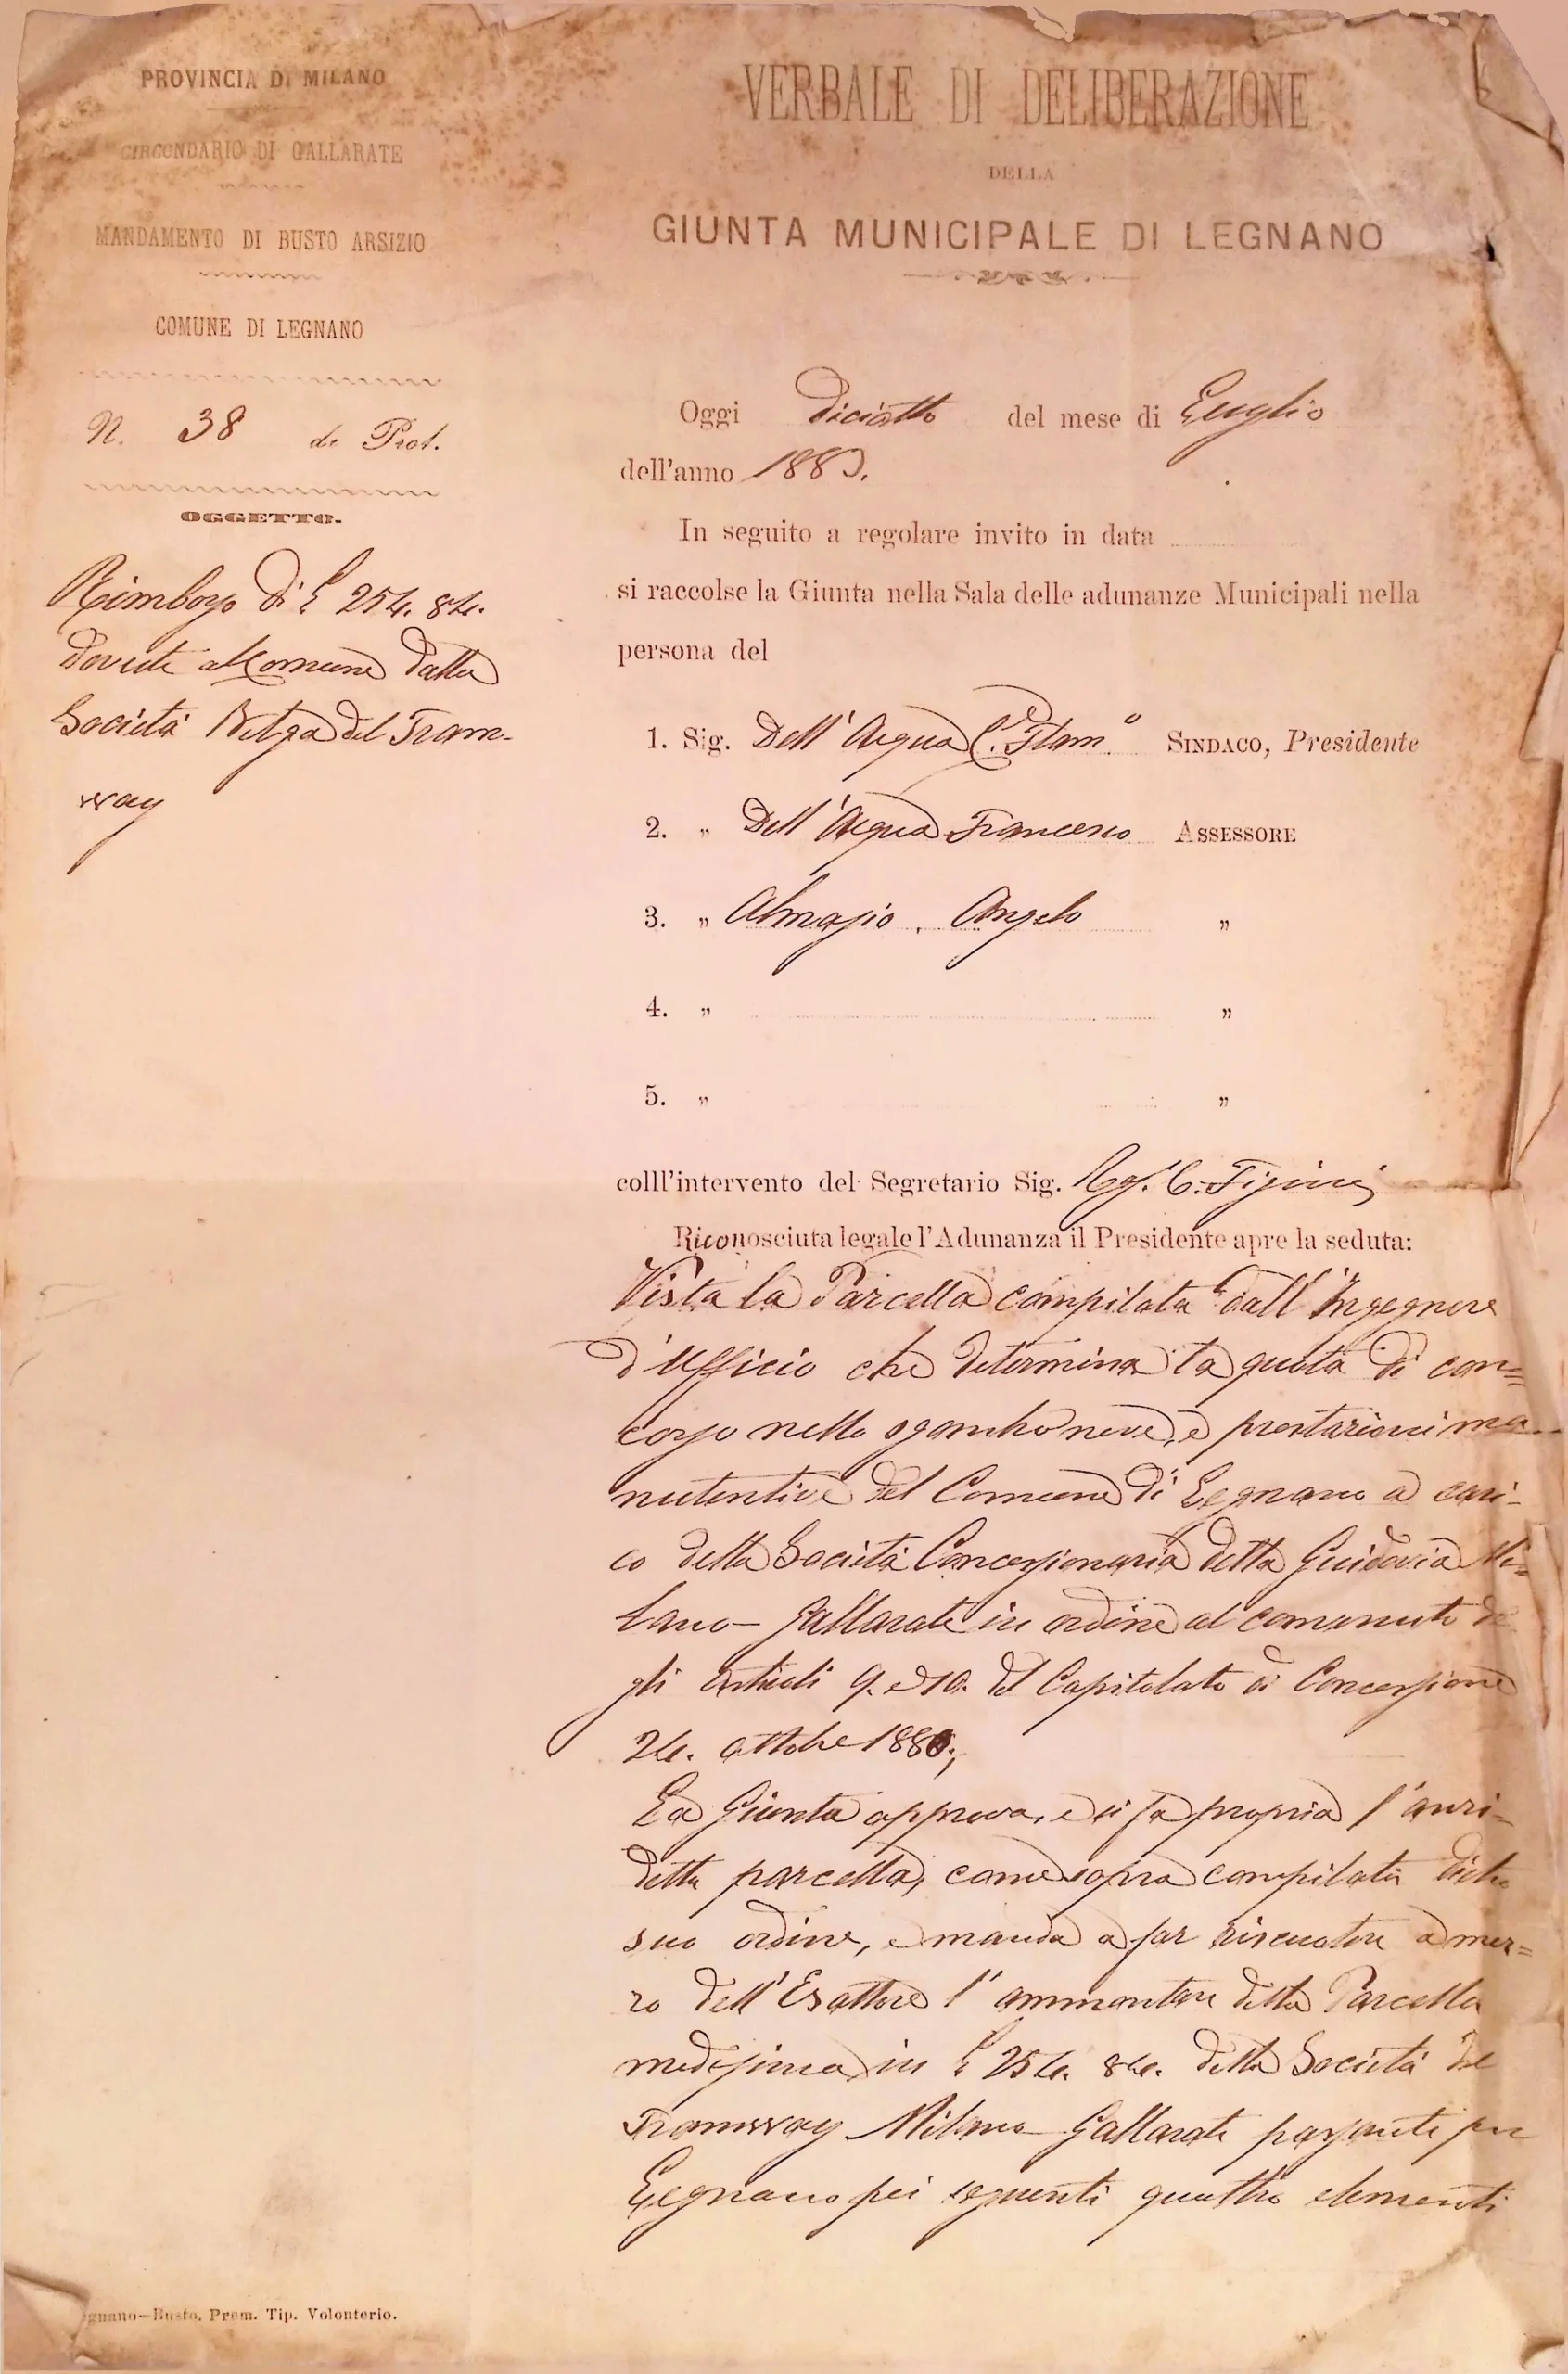 PROVINCIA DI MILANO
CIRCONDARIO DI GALLARATE
MANDAMENTO DI BUSTO ARSIZIO
COMUNE DI LEGNANO
N. 38 di Prot.
OGGETTO.
Rimborso di £ 254. 84.
dovute al Comune dalla
Società Belga del Tram-
way
VERBALE DI DELIBERAZIONE
DELLA
GIUNTA MUNICIPALE DI LEGNANO
Oggi diciotto del mese di Luglio
dell'anno 1883.
In seguito a regolare invito in data
si raccolse la Giunta nella Sala delle adunanze Municipali nella
persona del
1. Sig. Dell'Acqua C. Flam.º SINDACO, Presidente
2. „ Dell'Acqua Francesco ASSESSORE
3. „ Almasio Angelo „
4. „ „
5. „ „
colll'intervento del Segretario Sig. Rag. C. Figini
Riconosciuta legale l'Adunanza il Presidente apre la seduta:
Vista la Parcella compilata dall'Ingegnere
d'Ufficio che determina la quota di con=
corso nello sgombro neve, e prestazioni ma-
nutentive del Comune di Legnano a cari-
co della Società Concessionaria della Guidovia Mi=
lano-Gallarate in ordine al comminuto de
gli articoli 9. e 10. del Capitolato di Concessione
24. ottobre 1880.;
La Giunta approva, e si fa propria l'anzi-
detta parcella, come sopra compilata dietro
suo ordine, e manda a far riscuotere a mez=
zo dell'Esattore l'ammontare della Parcella
medesima in £ 254. 84. dalla Società del
Tramway Milano-Gallarate passante per
Legnano pei seguenti quattro elementi
gnano—Busto. Prem. Tip. Volonterio.